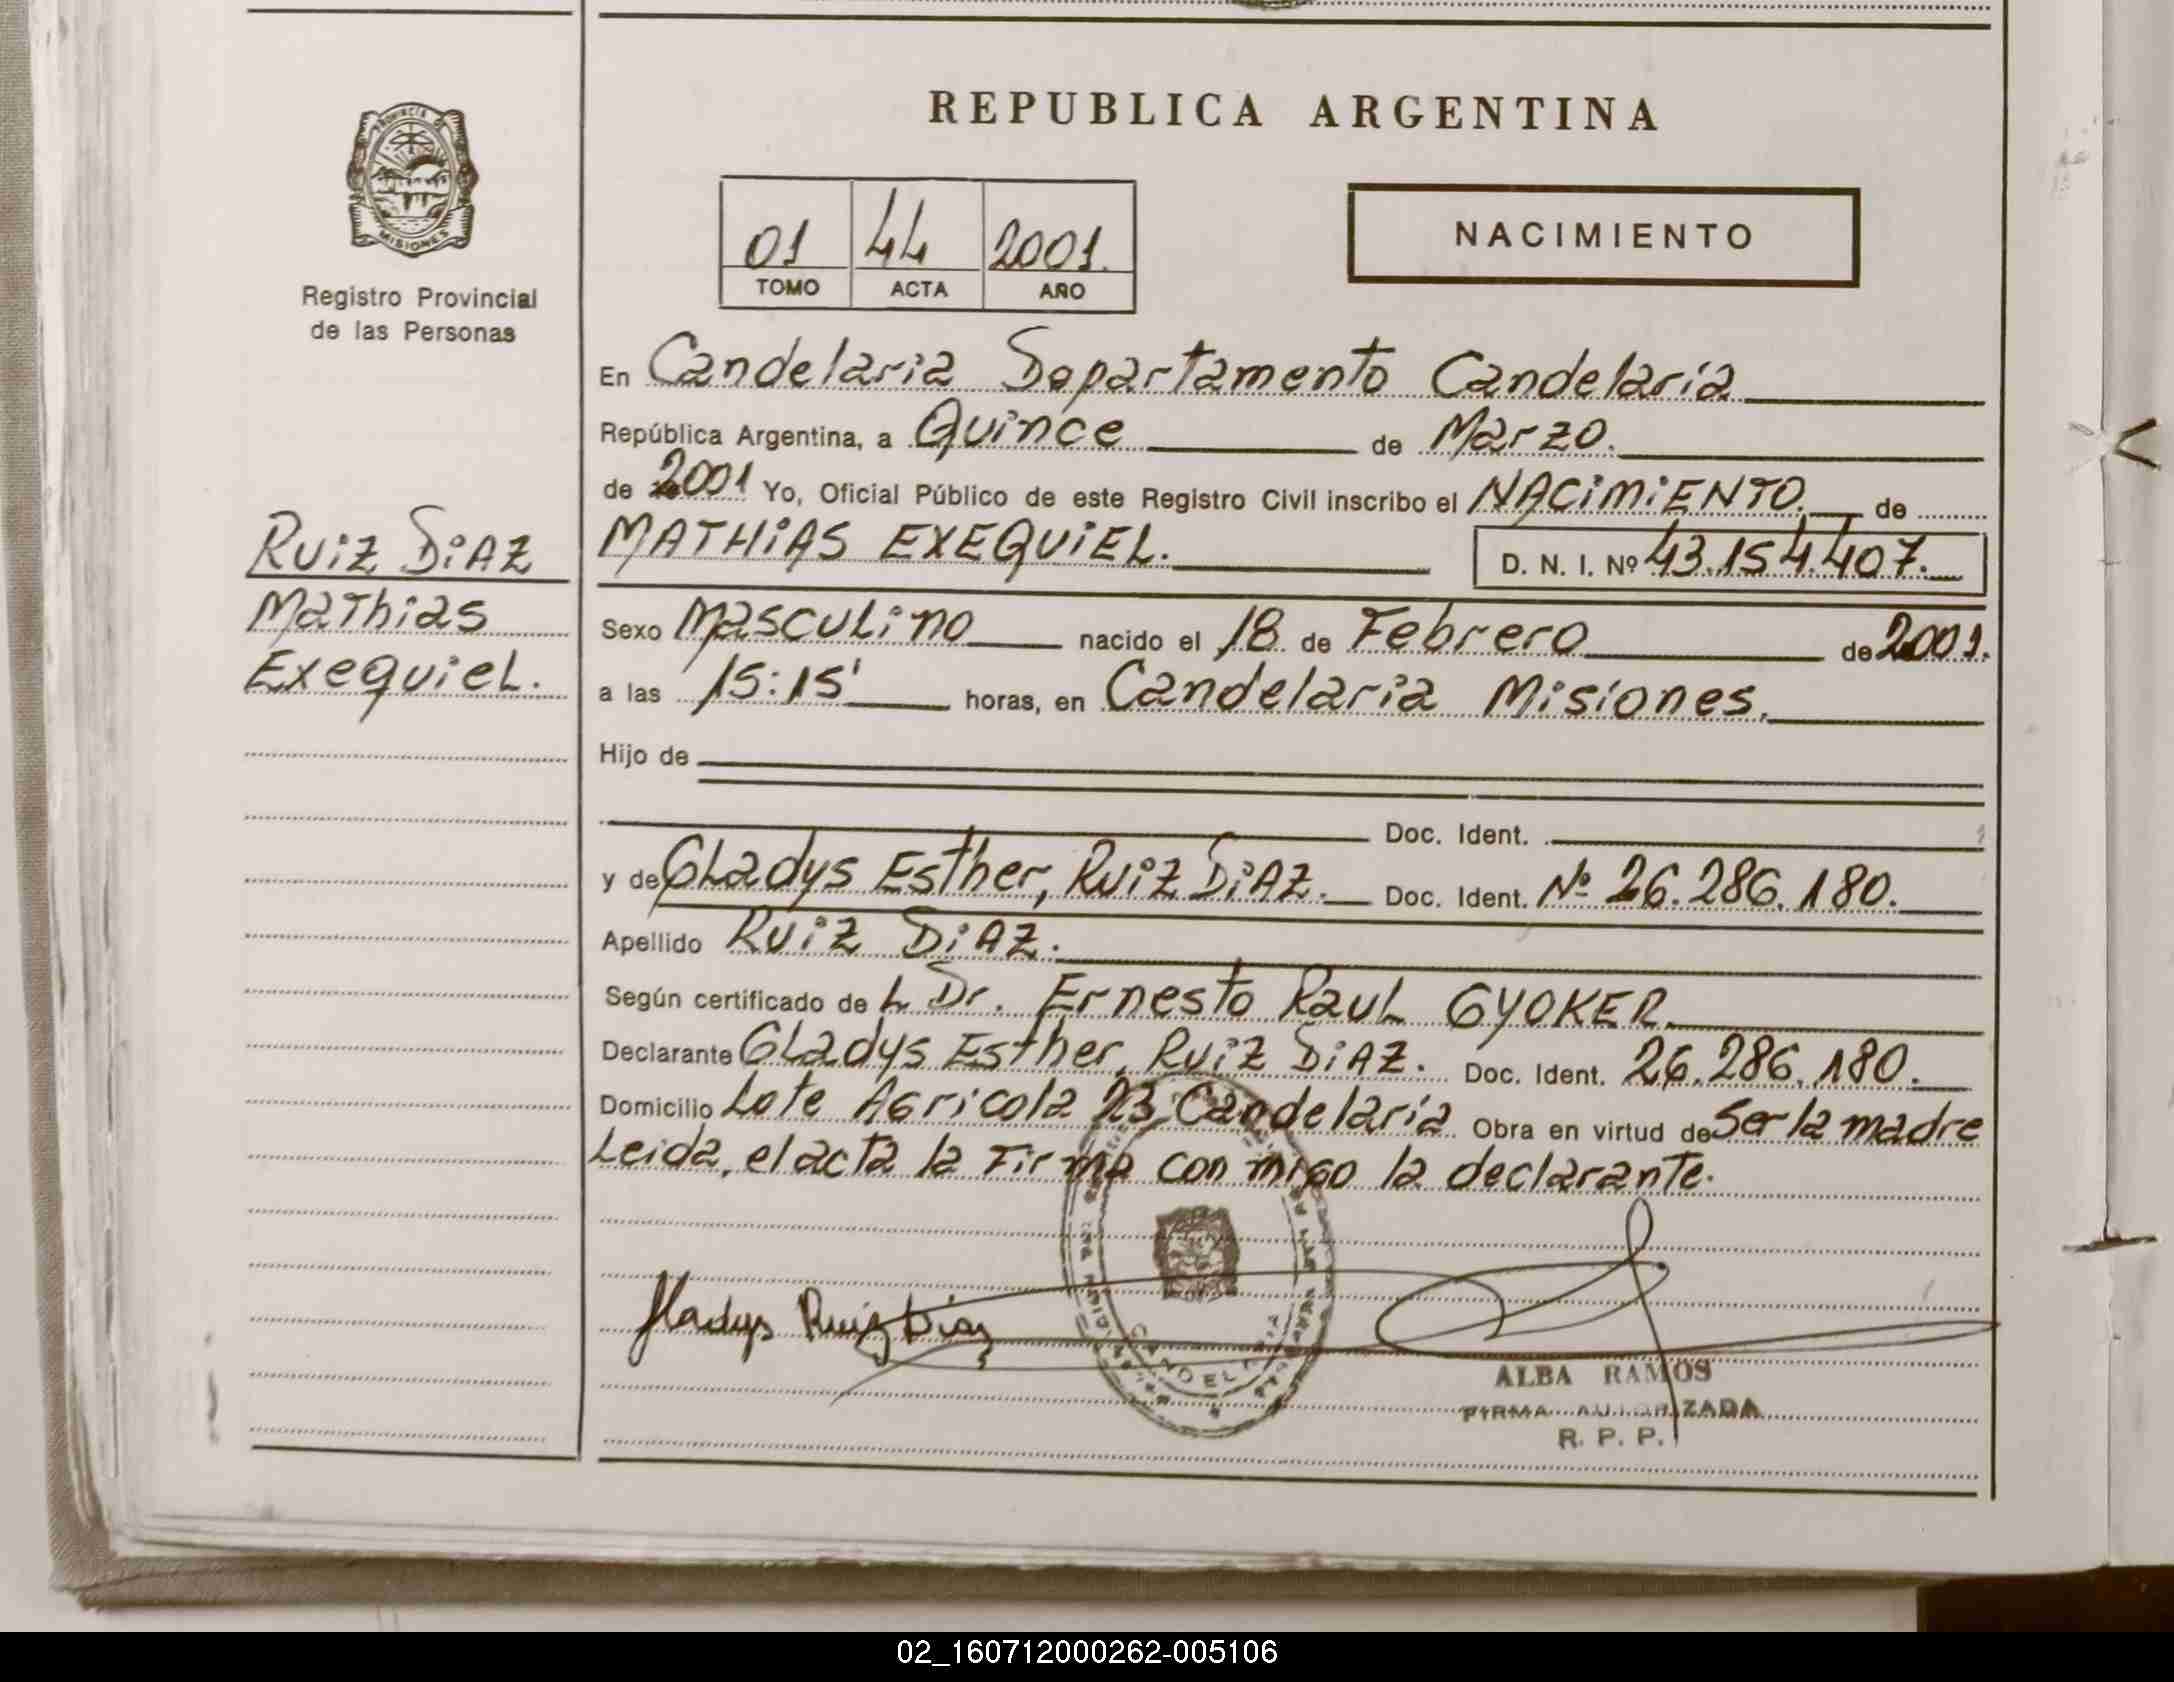 REPUBLICA ARGENTINA
PROVINCIA DE
MISIONES
Registro Provincial
de las Personas
01 44 2001.
TOMO ACTA AÑO
NACIMIENTO
En Candelaria Departamento Candelaria
República Argentina, a Quince de Marzo.
de 2001 Yo, Oficial Público de este Registro Civil inscribo el NACIMIENTO. de
RUIZ DIAZ
Mathias
Exequiel.
MATHIAS EXEQUIEL. D. N. I. Nº 43.154.407.
Sexo Masculino nacido el 18 de Febrero de 2001.
a las 15:15' horas, en Candelaria Misiones.
Hijo de
Doc. Ident.
y de Gladys Esther, RUIZ DIAZ. Doc. Ident. Nº 26.286.180.
Apellido RUIZ DIAZ.
Según certificado de L Dr. Ernesto Raul GYOKER.
Declarante Gladys Esther, RUIZ DIAZ. Doc. Ident. 26.286.180.
Domicilio Lote Agricola 23 Candelaria Obra en virtud de Ser la madre
Leida, el acta la Firma con migo la declarante.
Gladys Ruiz Diaz
CANDELARIA
ALBA RAMOS
FIRMA AUTORIZADA
R. P. P.
02_160712000262-005106